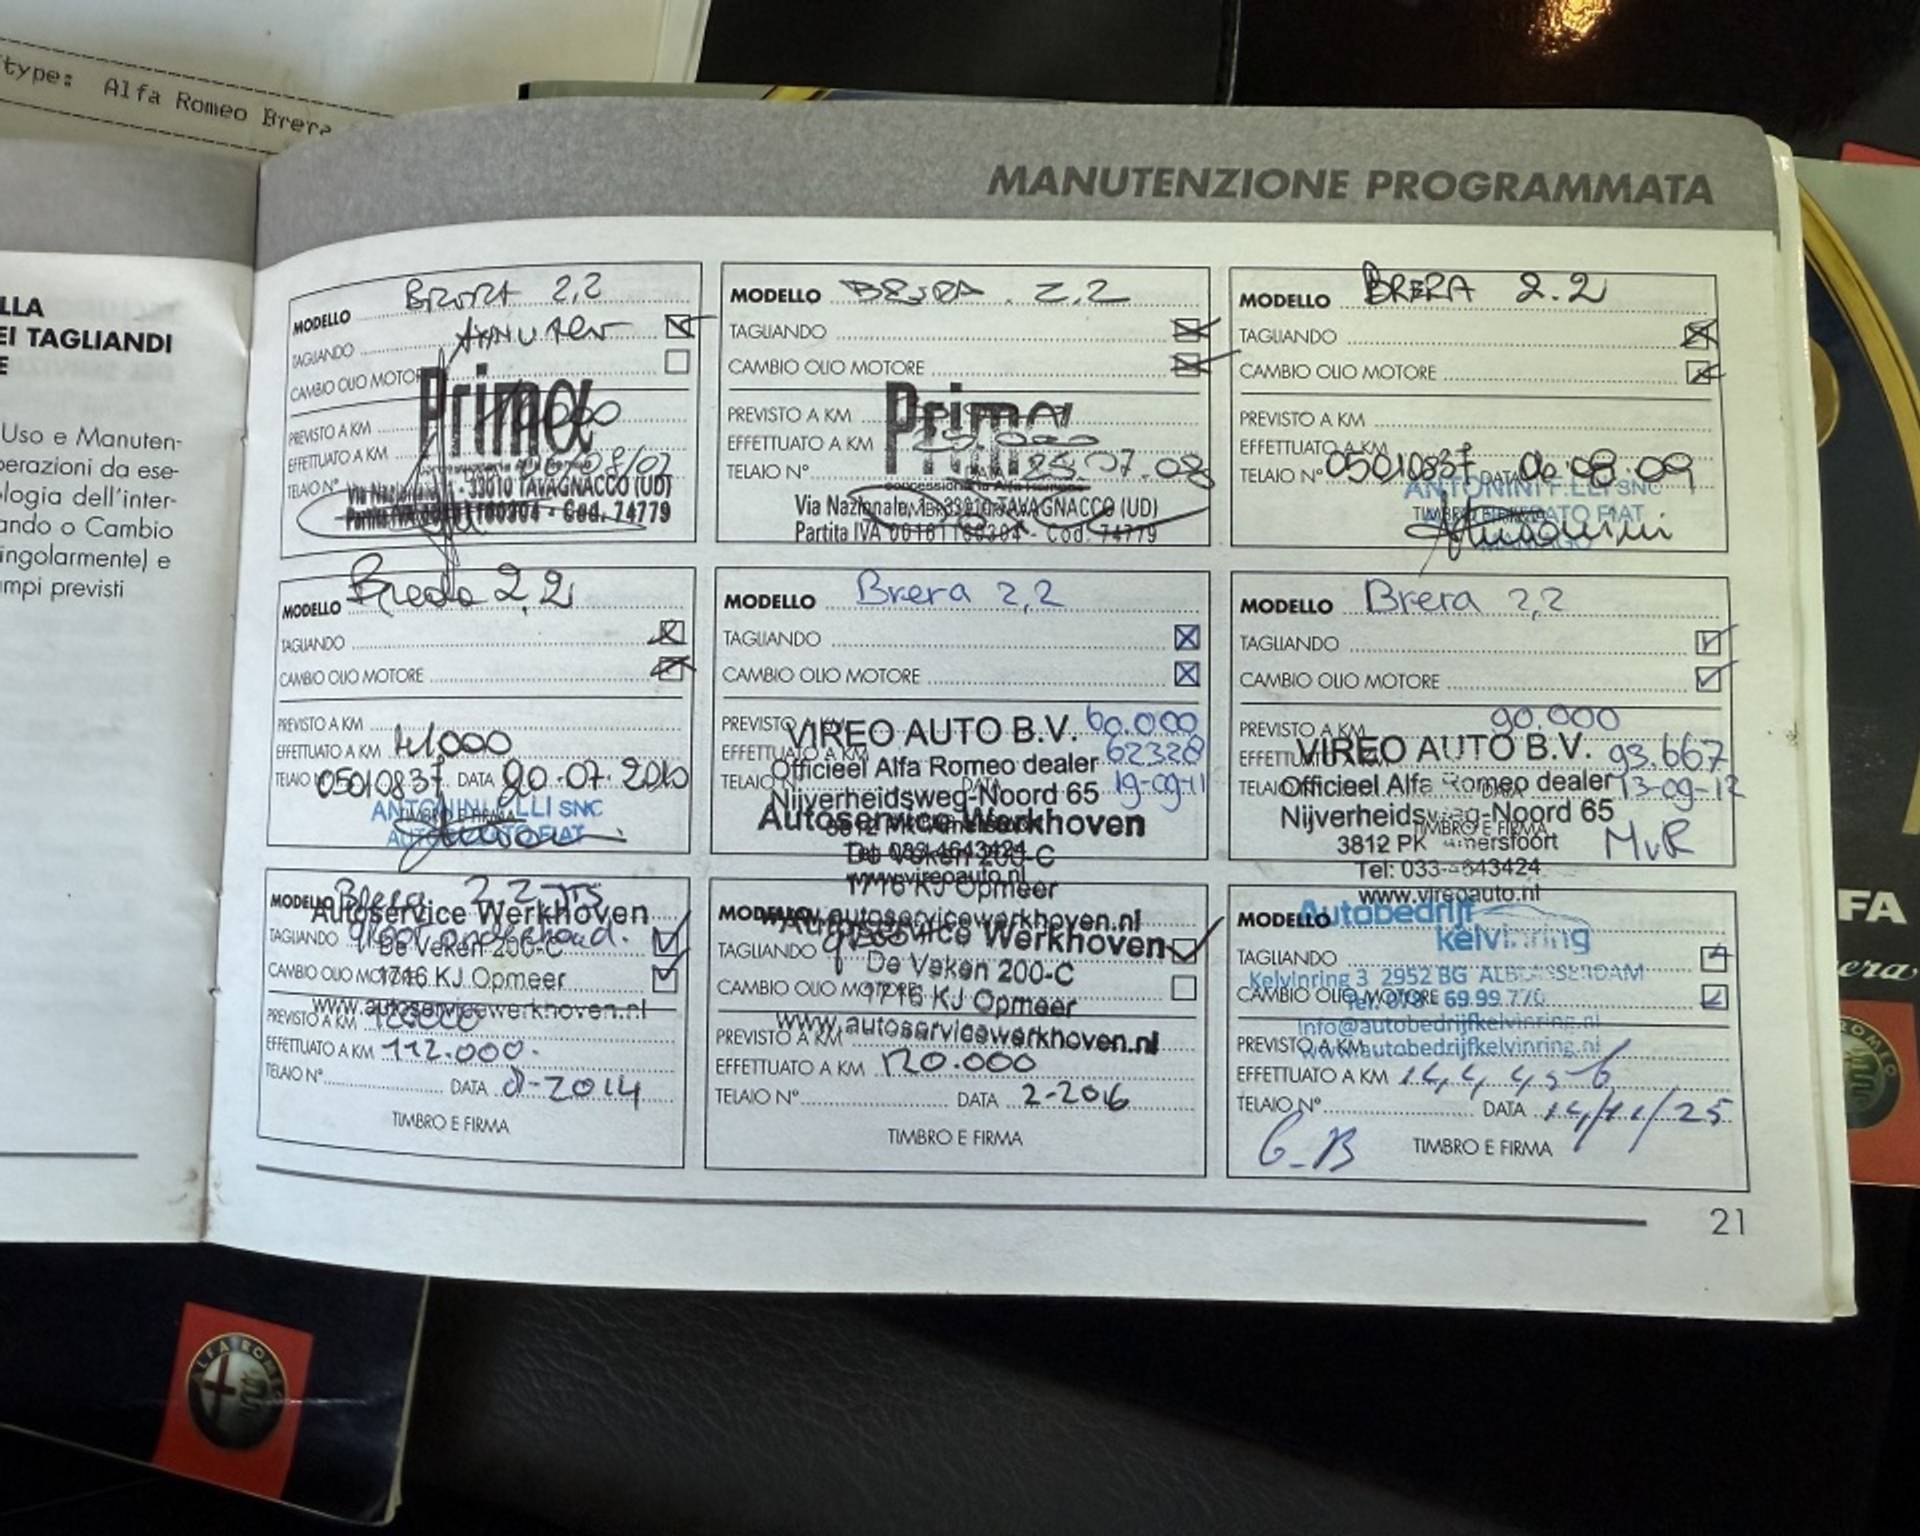 type: Alfa Romeo Brera
LLA
EI TAGLIANDI
E
Uso e Manuten-
perazioni da ese-
ologia dell'inter-
ando o Cambio
ingolarmente) e
mpi previsti
MANUTENZIONE PROGRAMMATA
MODELLO 2,2
TAGLIANDO
CAMBIO OLIO MOTORE
Prima
PREVISTO A KM
EFFETTUATO A KM
TELAIO N° 08/07
33010 TAVAGNACCO (UD)
Partita IVA - Cod. 74779
MODELLO 2,2
TAGLIANDO
CAMBIO OLIO MOTORE
Prima
PREVISTO A KM
EFFETTUATO A KM
TELAIO N° 25.07.08
Via Nazionale, 33010 TAVAGNACCO (UD)
Partita IVA - Cod. 74779
MODELLO BRERA 2.2
TAGLIANDO
CAMBIO OLIO MOTORE
PREVISTO A KM
EFFETTUATO A KM
TELAIO N° 05010837 DATA 06.08.09
ANTONINI F.LLI SNC
FIAT
MODELLO Breda 2,2
TAGLIANDO
CAMBIO OLIO MOTORE
PREVISTO A KM
EFFETTUATO A KM 41000
TELAIO 05010837 DATA 20.07.2010
ANTONINI F.LLI SNC
FIAT
MODELLO Brera 2,2
TAGLIANDO
CAMBIO OLIO MOTORE
PREVISTO A KM 60.000
VIREO AUTO B.V.
EFFETTUATO A KM 62328
Officieel Alfa Romeo dealer
TELAIO 19-09-11
Nijverheidsweg-Noord 65
Autoservice Werkhoven
De Veken 200-C
www.vireoauto.nl
1716 KJ Opmeer
www.autoservicewerkhoven.nl
MODELLO Brera 2,2
TAGLIANDO
CAMBIO OLIO MOTORE
PREVISTO A KM 90.000
VIREO AUTO B.V. 93.667
Officieel Alfa Romeo dealer 13-09-12
Nijverheidsweg-Noord 65
TIMBRO E FIRMA
3812 PK Amersfoort MvR
Tel: 033-4643424
www.vireoauto.nl
MODELLO Brera 2.2 JTS
Autoservice Werkhoven
TAGLIANDO groot onderhoud.
De Veken 200-C
CAMBIO OLIO MOTORE
1716 KJ Opmeer
www.autoservicewerkhoven.nl
PREVISTO A KM
EFFETTUATO A KM 112.000.
TELAIO N° DATA 8-2014
TIMBRO E FIRMA
MODELLO
Autoservice Werkhoven
TAGLIANDO
De Veken 200-C
CAMBIO OLIO MOTORE
1716 KJ Opmeer
www.autoservicewerkhoven.nl
PREVISTO A KM
EFFETTUATO A KM 120.000
TELAIO N° DATA 2-2016
TIMBRO E FIRMA
MODELLO
Autobedrijf
kelvinring
TAGLIANDO
Kelvinring 3 2952 BG ALBLASSERDAM
CAMBIO OLIO MOTORE
Tel. 69.99.776
info@autobedrijfkelvinring.nl
www.autobedrijfkelvinring.nl
PREVISTO A KM
EFFETTUATO A KM
TELAIO N° DATA 14/11/25
G-B TIMBRO E FIRMA
21
FA
era
ALFA ROMEO